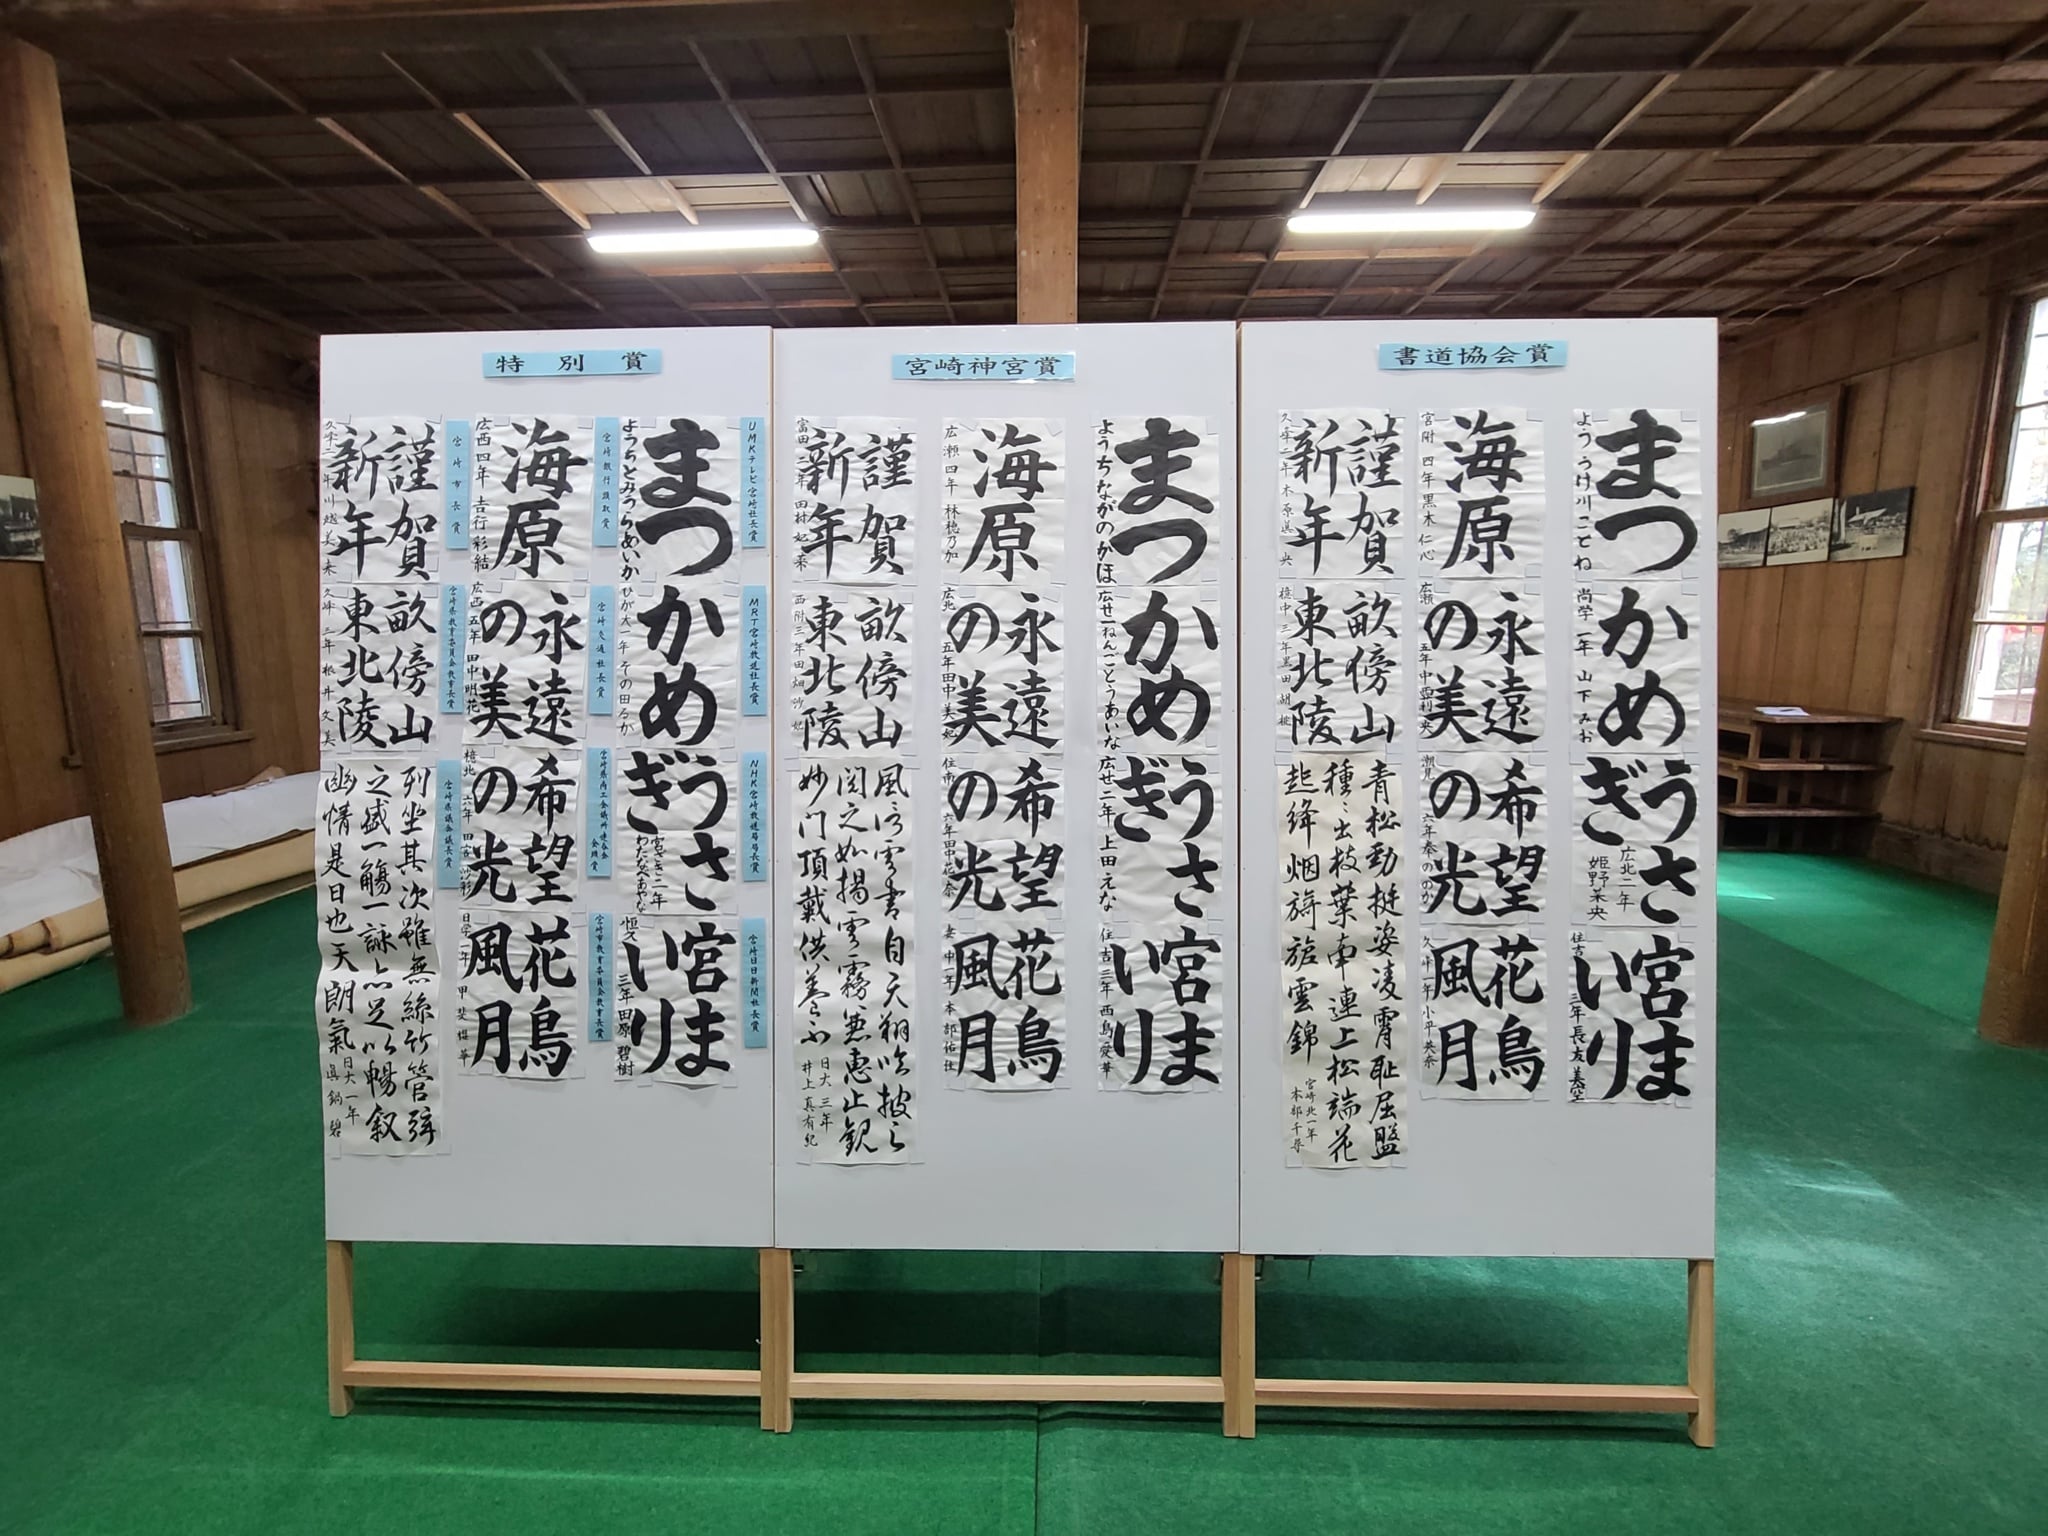 特別賞
UMKテレビ宮崎社長賞
まつ
ようちとみうらめいか
MRT宮崎放送社長賞
かめ
ひが大一年
NHK宮崎放送局長賞
うさ
ぎ
宮ざき二年
わたなべあやな
宮崎日日新聞社長賞
宮ま
いり
恒久
三年田原碧樹
宮崎銀行頭取賞
海原
広西四年吉行彩結
宮崎交通社長賞
永遠
の美
広西五年田中明花
希望
の光
六年
宮崎市教育委員会教育長賞
花鳥
風月
日学一年甲斐
宮崎市長賞
謹賀
新年
宮崎県教育委員会教育長賞
畝傍山
東北陵
久峰三年根井文美
宮崎県議会議長賞
列坐其次雖無絲竹管弦
之盛一觴一詠亦足以暢叙
幽情是日也天朗氣
日大一年
眞鍋碧
宮崎神宮賞
まつ
ようちながのかほ
かめ
広せ一ねんごとうあいな
うさ
ぎ
広せ二年上田えな
宮ま
いり
住吉三年西島愛華
海原
広瀬四年林穂乃加
永遠
の美
広北五年田中美妃
希望
の光
住南六年田中花奈
花鳥
風月
妻中一年本部佑佳
謹賀
新年
富田二年田村妃奈
畝傍山
東北陵
西附三年田畑沙妃
日大三年
井上真有紀
書道協会賞
まつ
よううけ川ことね
かめ
尚学一年山下みお
うさ
ぎ
広北二年
姫野茉央
宮ま
いり
住吉
三年長友美空
海原
宮附四年黒木仁心
永遠
の美
広瀬五年中
希望
の光
潮見六年秦ののか
花鳥
風月
久峰一年小平英奈
謹賀
新年
畝傍山
東北陵
檍中三年黒田胡桃
青松勁挺姿凌霄恥屈盤
種々出枝葉南連上松端花
起絳烟旖旎雲錦
宮崎北一年
本部千尋